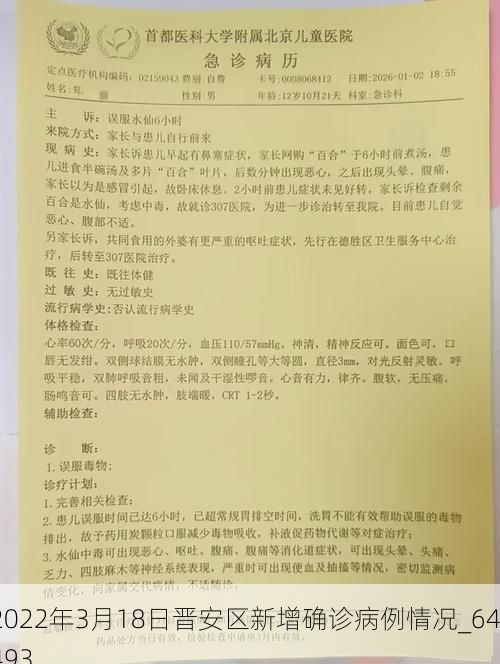 首都医科大学附属北京儿童医院
急诊病历
定点医疗机构编码：02159043 费别：自费 卡号：0008068412 日期：2026-01-02 18:55
姓名：郑 性别：男 年龄：12岁10月21天 科室：急诊科
主 诉：误服水仙6小时
来院方式：家长与患儿自行前来
现 病 史：家长诉患儿早起有鼻塞症状，家长网购“百合”于6小时前煮汤，患
儿进食半碗汤及多片“百合”叶片，后数分钟出现恶心，之后出现头晕、腹痛，
家长以为是感冒引起，故卧床休息。2小时前患儿症状未见好转，家长诉检查剩余
百合是水仙，考虑中毒，故就诊307医院，为进一步诊治转至我院。目前患儿自觉
恶心、腹部不适。
另家长诉，共同食用的外婆有更严重的呕吐症状，先行在德胜区卫生服务中心治
疗，后转至307医院治疗。
既 往 史：既往体健
过 敏 史：无过敏史
流行病学史：否认流行病学史
体格检查：
心率60次/分，呼吸20次/分，血压110/57mmHg。神清，精神反应可。面色可。口
唇无发绀。双侧球结膜无水肿，双侧瞳孔等大等圆，直径3mm，对光反射灵敏。呼
吸平稳，双肺呼吸音粗，未闻及干湿性啰音。心音有力，律齐。腹软，无压痛，
肠鸣音可。四肢无水肿，肢端暖，CRT 1-2秒。
辅助检查：
诊 断：
1.误服毒物；
诊疗计划：
1.完善相关检查；
2.患儿误服时间已达6小时，已超常规胃排空时间，洗胃不能有效帮助误服的毒物
排出，故予药用炭颗粒口服减少毒物吸收，补液促药物代谢等对症治疗；
3.水仙中毒可出现恶心、呕吐、腹痛、腹痛等消化道症状，可出现头晕、头痛、
乏力、四肢麻木等神经系统表现，严重时可出现便血及抽搐等情况，密切监测病
情变化，向家属交代病情，不适随诊。
2022年3月18日晋安区新增确诊病例情况_64
493